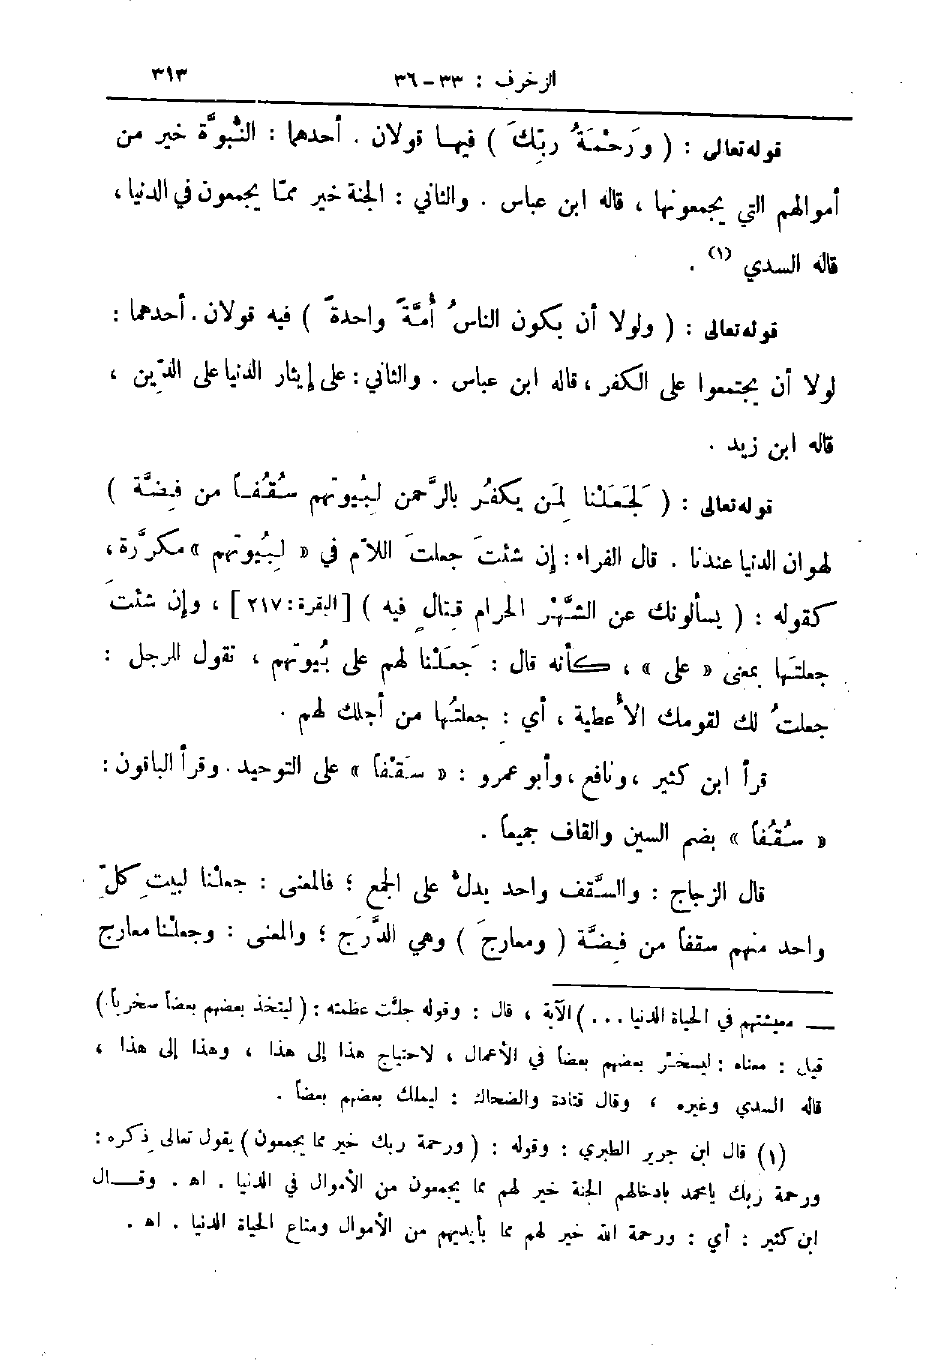 الزخرف : ٣٣ - ٣٦ ٣١٣
قوله تعالى : ( ورَحْمَةُ ربِّكَ ) فيها قولان . أحدهما : النُّبوَّة خير من
أموالهم التي يجمعونها ، قاله ابن عباس . والثاني : الجنة خير ممّا يجمعون في الدنيا ،
قاله السدي (١) .
قوله تعالى : ( ولولا أن يكون الناسُ أُمَّةً واحدةً ) فيه قولان . أحدهما :
لولا أن يجتمعوا على الكفر ، قاله ابن عباس . والثاني : على إيثار الدنيا على الدِّين ،
قاله ابن زيد .
قوله تعالى : ( لَجَعَلْنا لِمَن يكفُر بالرَّحمن لِبُيوتهم سُقُفاً من فِضَّة )
لهوان الدنيا عندنا . قال الفراء : إن شئتَ جعلتَ اللاّم في « لِبُيوتهم » مكرَّرة ،
كقوله : ( يسألونك عن الشَّهْر الحرام قتالٍ فيه ) [ البقرة : ٢١٧ ] ، وإن شئتَ
جعلتَها بمعنى « على » ، كأنه قال : جَعَلْنا لهم على بُيوتهم ، تقول للرجل :
جعلتُ لك لقومك الأُعطية ، أي : جعلتُها من أجلك لهم .
قرأ ابن كثير ، ونافع ، وأبو عمرو : « سَقْفاً » على التوحيد . وقرأ الباقون :
« سُقُفاً » بضم السين والقاف جميعاً .
قال الزجاج : والسَّقف واحد يدلُّ على الجمع ؛ فالمعنى : جعلْنا لبيتِ كلِّ
واحد منهم سقفاً من فِضَّة ( ومعارجَ ) وهي الدَّرَج ؛ والمعنى : وجعلْنا معارج
— معيشتهم في الحياة الدنيا ... ) الآية ، قال : وقوله جلَّت عظمته : ( ليتخذ بعضهم بعضاً سخرياً )
قيل : معناه : ليسخِّر بعضهم بعضاً في الأعمال ، لاحتياج هذا إلى هذا ، وهذا إلى هذا ،
قاله السدي وغيره ، وقال قتادة والضحاك : ليملك بعضهم بعضاً .
(١) قال ابن جرير الطبري : وقوله : ( ورحمة ربك خير مما يجمعون ) يقول تعالى ذكره :
ورحمة ربك يا محمد بادخالهم الجنة خير لهم مما يجمعون من الأموال في الدنيا . اه . وقال
ابن كثير : أي : ورحمة الله خير لهم مما بأيديهم من الأموال ومتاع الحياة الدنيا . اه .